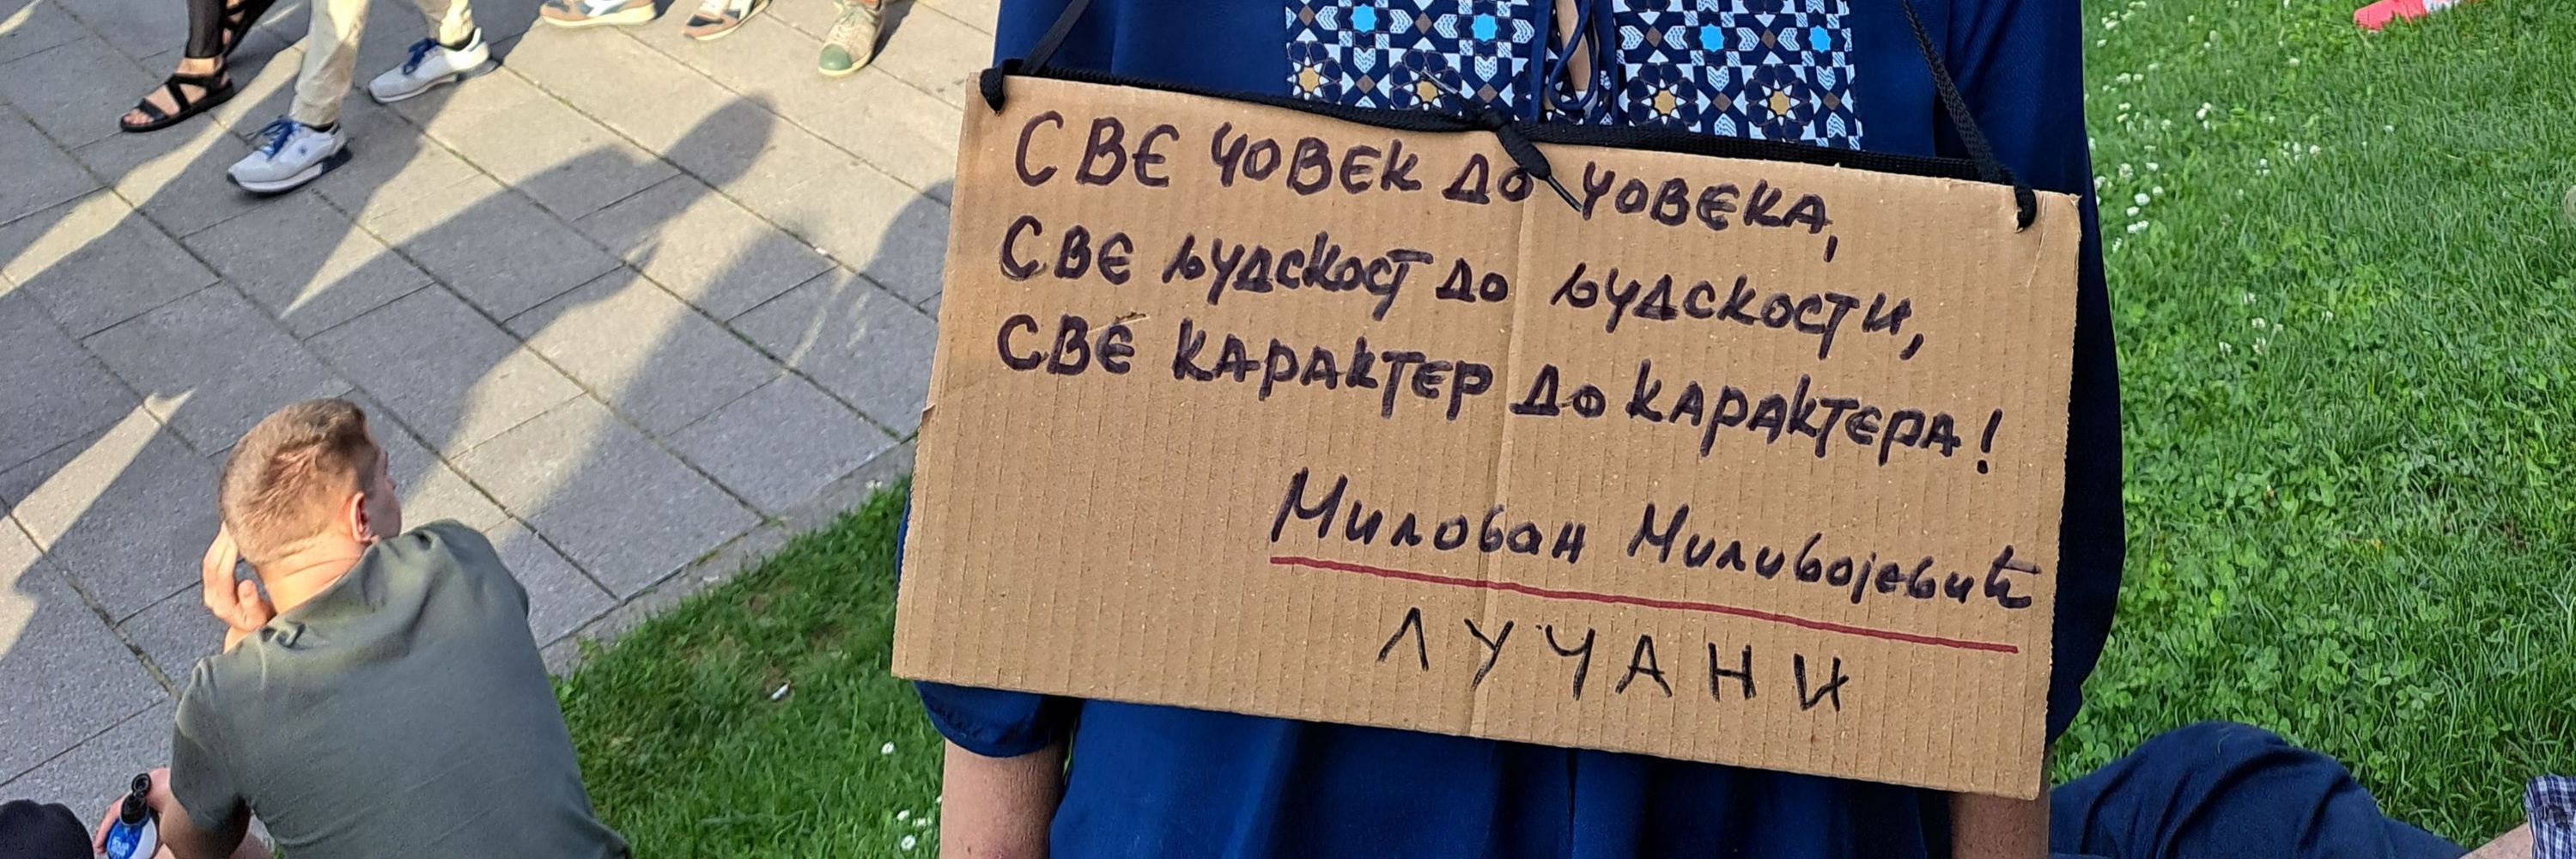 СВЕ ЧОВЕК ДО ЧОВЕКА,
СВЕ ЉУДСКОСТ ДО ЉУДСКОСТИ,
СВЕ КАРАКТЕР ДО КАРАКТЕРА!
Милован Миливојевић
ЛУЧАНИ